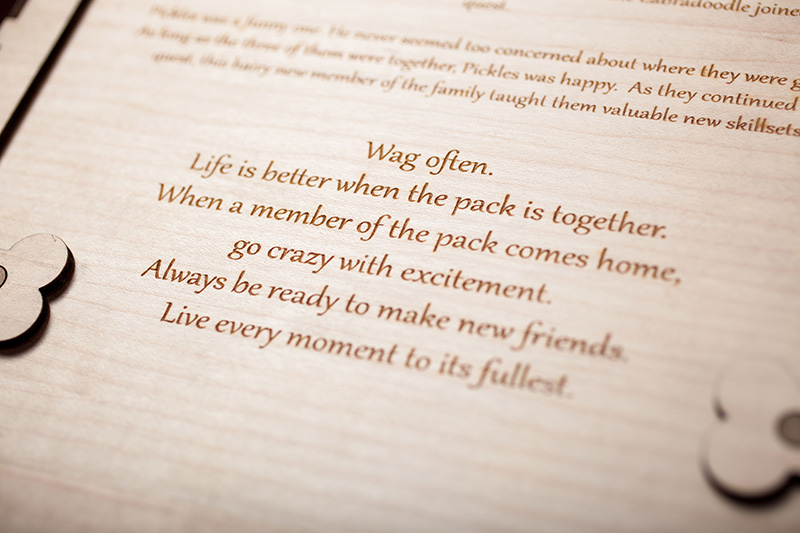 Labradoodle joine
quest.
Pickles was a funny one. He never seemed too concerned about where they were g
As long as the three of them were together, Pickles was happy. As they continued
quest, this hairy new member of the family taught them valuable new skillsets
Wag often.
Life is better when the pack is together.
When a member of the pack comes home,
go crazy with excitement.
Always be ready to make new friends.
Live every moment to its fullest.